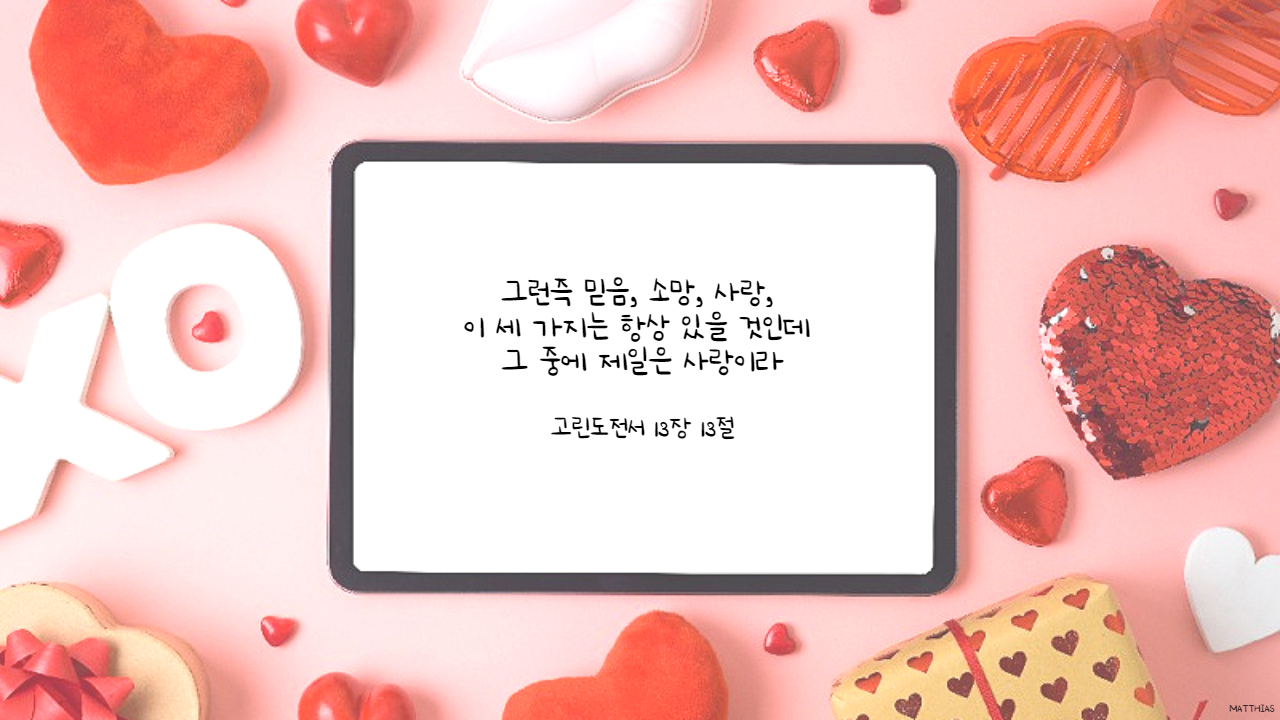 그런즉 믿음, 소망, 사랑,
이 세 가지는 항상 있을 것인데
그 중에 제일은 사랑이라
고린도전서 13장 13절
MATTHIAS